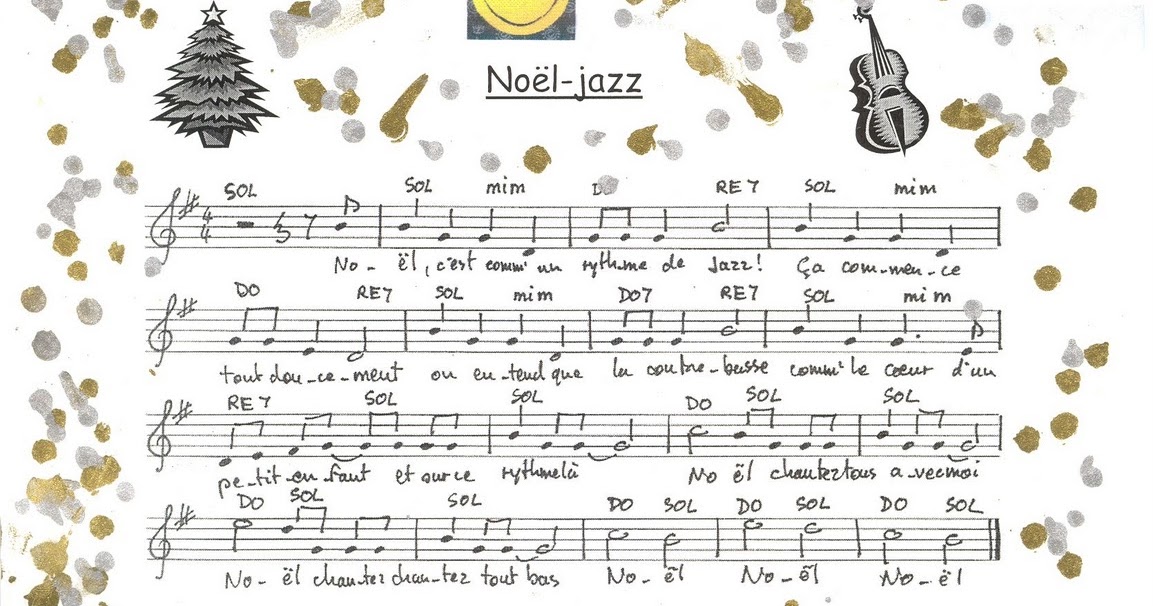 Noël-jazz
SOL SOL mim RE7 SOL mim
4
4
No - ël, c'est comm' un rythme de Jazz! Ça com-men-ce
DO RE7 SOL mim DO7 RE7 SOL mim
tout dou-ce-ment on en-tend que la contre-basse comm' le cœur d'un
RE7 SOL SOL DO SOL SOL
pe-tit en-fant et sur ce rythme là No ël chantez tous a-vec moi
DO SOL SOL DO SOL DO SOL DO SOL
No-ël chan-tez chan-tez tout bas No-ël No-ël No-ël